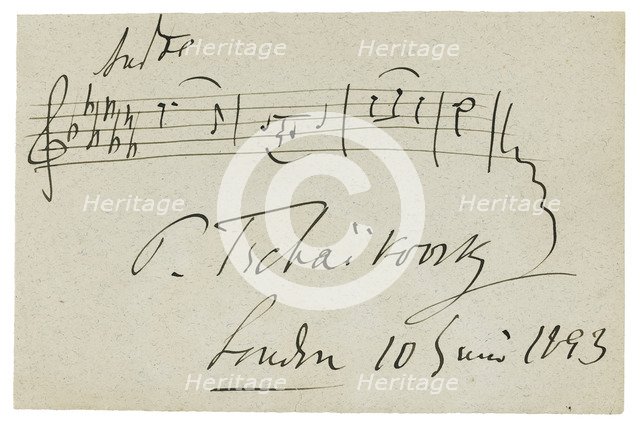 Andte
Heritage Heritage
P. Tschaïkovsky
Heritage Heritage
London 10 Juin 1893
Heritage Heritage
©